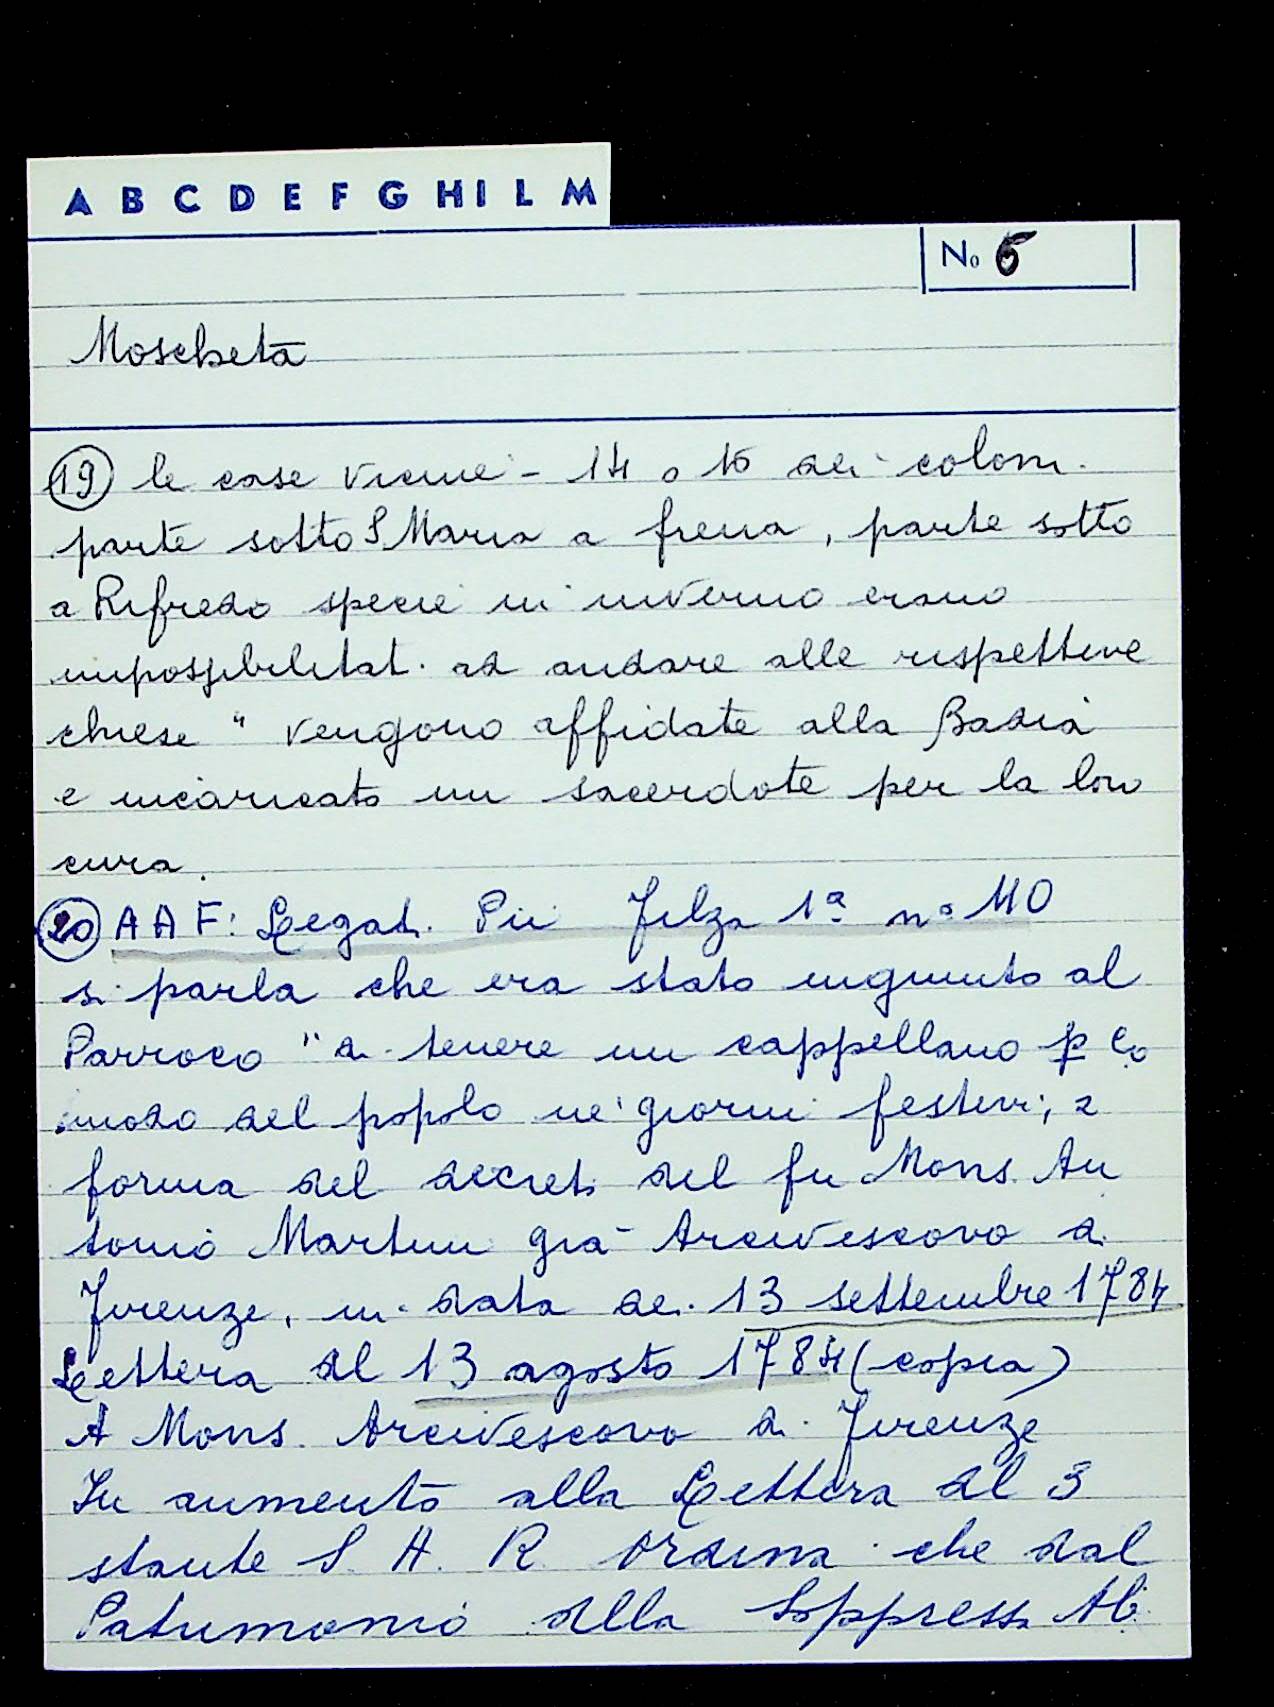 A B C D E F G H I L M
No 6
Moscheta
(19) le case vicine - 14 o 15 dei coloni
parte sotto S Maria a frena, parte sotto
a Rifredo specie in inverno erano
impossibilitati ad andare alle rispettive
chiese " vengono affidate alla Badia
e incaricato un sacerdote per la loro
cura.
(20) A A F: Legati Pii Filza 1ª nº 110
si parla che era stato ingiunto al
Parroco "di tenere un cappellano p co
modo del popolo ne' giorni festivi, a
forma del decreto del fu Mons. An
tonio Martini già Arcivescovo di
Firenze, in data dei 13 settembre 1784
Lettera del 13 agosto 1784 (copia)
A Mons. Arcivescovo di Firenze
In aumento alla Lettera del 3
stante S. A. R. ordina che dal
Patrimonio della Soppressa Ab